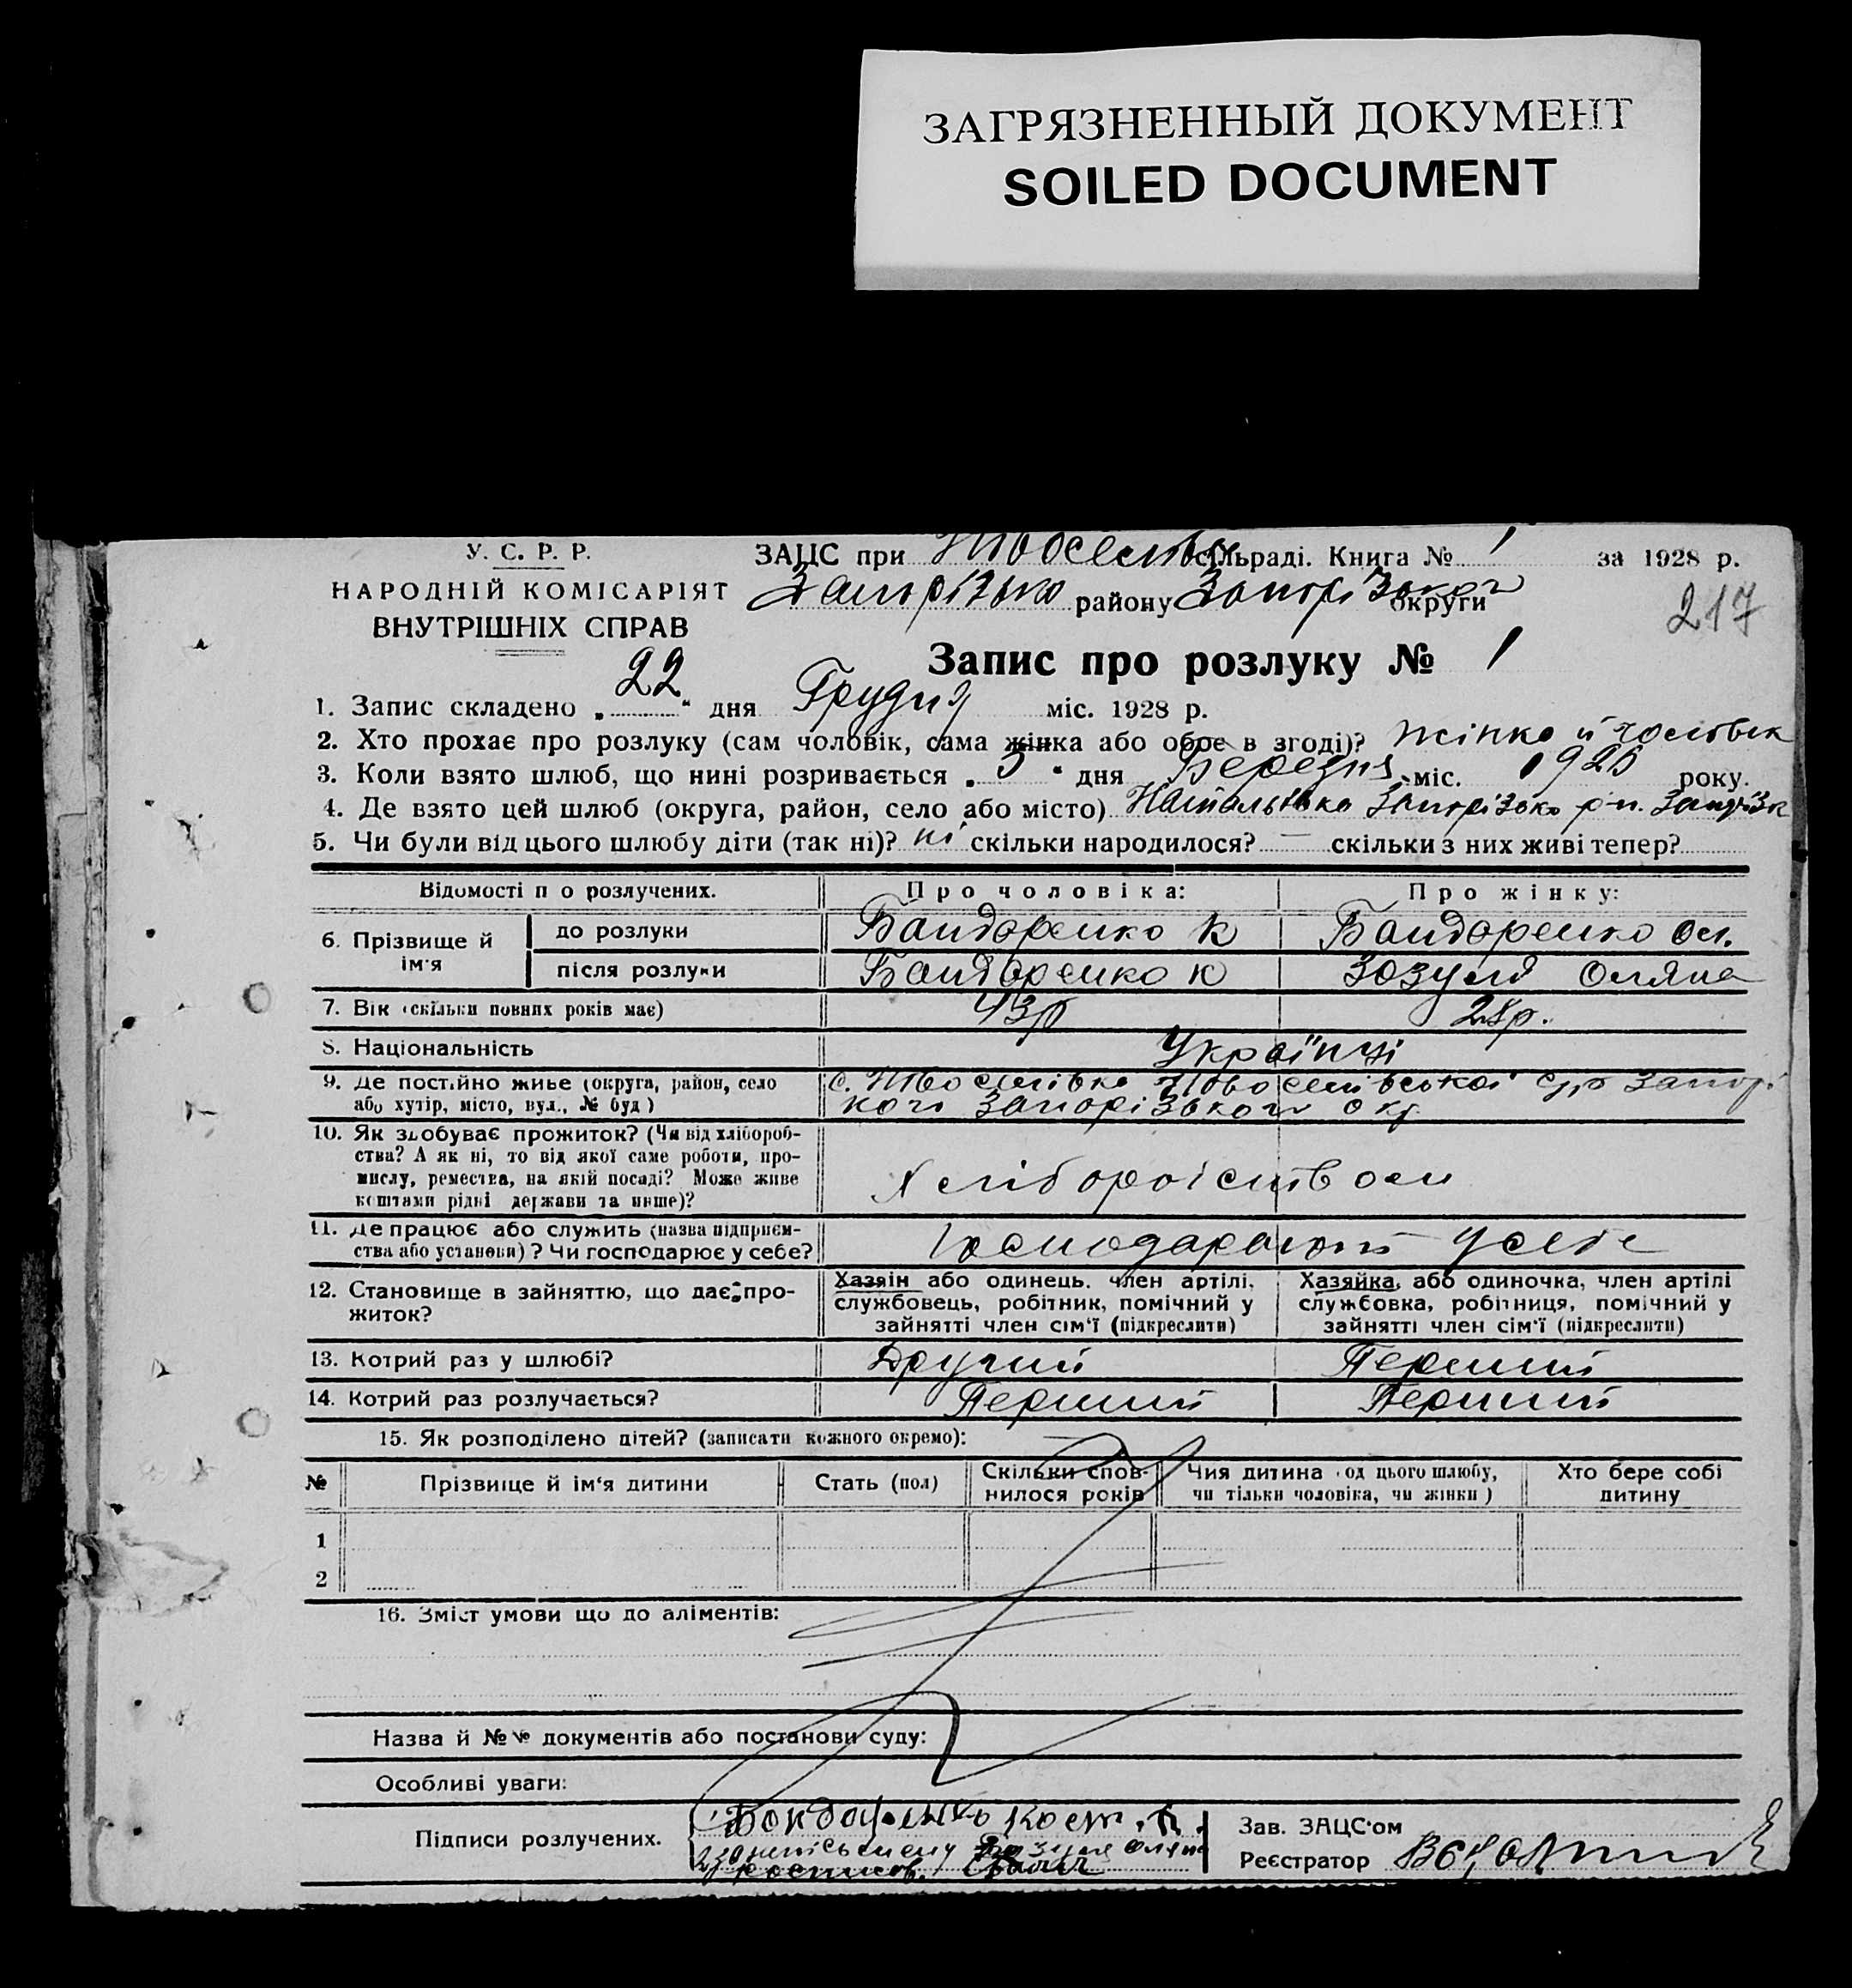 ЗАГРЯЗНЕННЫЙ ДОКУМЕНТ
SOILED DOCUMENT
У. С. Р. Р.
НАРОДНІЙ КОМІСАРІЯТ
ВНУТРІШНІХ СПРАВ
ЗАЦС при сільраді. Книга № 1 за 1928 р.
району округи
217
Запис про розлуку № 1
1. Запис складено „22“ дня Грудня міс. 1928 р.
2. Хто прохає про розлуку (сам чоловік, сама жінка або обоє в згоді)? жінка й чоловік
3. Коли взято шлюб, що нині розривається „3“ дня Березня міс. року.
4. Де взято цей шлюб (округа, район, село або місто) Наталівка р-н.
5. Чи були від цього шлюбу діти (так ні)? ні скільки народилося? — скільки з них живі тепер?
Відомості п о розлучених. Про чоловіка: Про жінку:
6. Прізвище й ім'я
до розлуки Бандоренко К Бандоренко Ол.
після розлуки Бандоренко К Зозуля Оляна
7. Вік (скільки повних років має) 43р 28р.
8. Національність Українці
9. Де постійно живе (округа, район, село
або хутір, місто, вул., № буд) Запорізького окр
10. Як здобуває прожиток? (Чи від хлібороб-
ства? А як ні, то від якої саме роботи, про-
мислу, ремества, на якій посаді? Може живе
коштами рідні держави та инше)?
11. Де працює або служить (назва підприєм-
ства або установи)? Чи господарює у себе? Господарюють у себе
12. Становище в зайняттю, що дає про-
житок?
Хазяін або одинець. член артілі,
службовець, робітник, помічний у
зайнятті член сім'ї (підкреслити)
Хазяйка, або одиночка, член артілі
службовка, робітниця, помічний у
зайнятті член сім'ї (підкреслити)
13. Котрий раз у шлюбі? Другий Перший
14. Котрий раз розлучається? Перший Перший
15. Як розподілено дітей? (записати кожного окремо):
№ Прізвище й ім'я дитини Стать (пол) Скільки спов-
нилося років Чия дитина (од цього шлюбу,
чи тільки чоловіка, чи жінки) Хто бере собі
дитину
1
2
16. Зміст умови що до аліментів:
Назва й №№ документів або постанови суду:
Особливі уваги:
Підписи розлучених.
Бондаренко Кост.
Зав. ЗАЦС'ом
Реєстратор